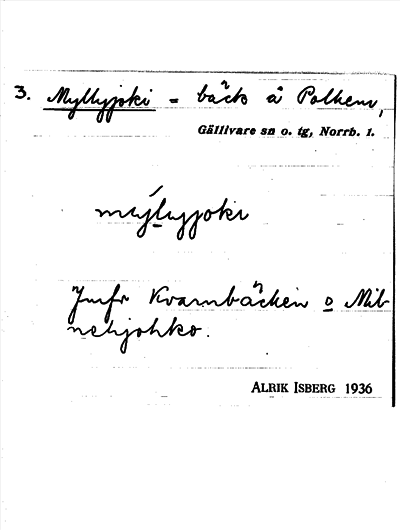 3. Myllyjoki = bäck å Polhem,
Gällivare sn o. tg, Norrb. l.
mýlyjoki
Jmfr Kvarnbäcken o Mil
nehjohko.
ALRIK ISBERG 1936